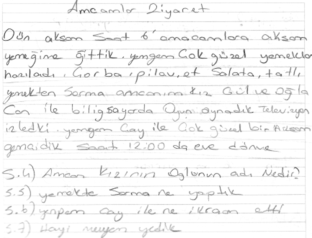 Amcamlar Ziyaret
Dün akşam Saat 6' amacamlara akşam
yemeğine gittik. yengem Çok güzel yemekler
hazıladı. Çorba, pilav, et Salata, tatlı,
yemekten Sarma amcamın kız Gül ve Oğla
Can ile biligsayorda Oyun oynadık Televizyon
izledki. yemgem Çay ile Çok güzel bir
Saaat 12.00 da eve
S.4) Amcan Kızının Oglunun adı Nedir?
S.5) yemekte Sarma ne yaptık
S.6) yengem Çay ile ne ikram etti
S.7) Hangi meyve yedik